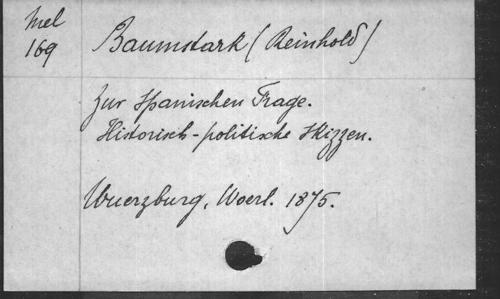 Mel
169
Baumstark (Reinhold)
Zur Spanischen Frage.
Historisch-politische Skizzen.
Wuerzburg, Woerl. 1875.